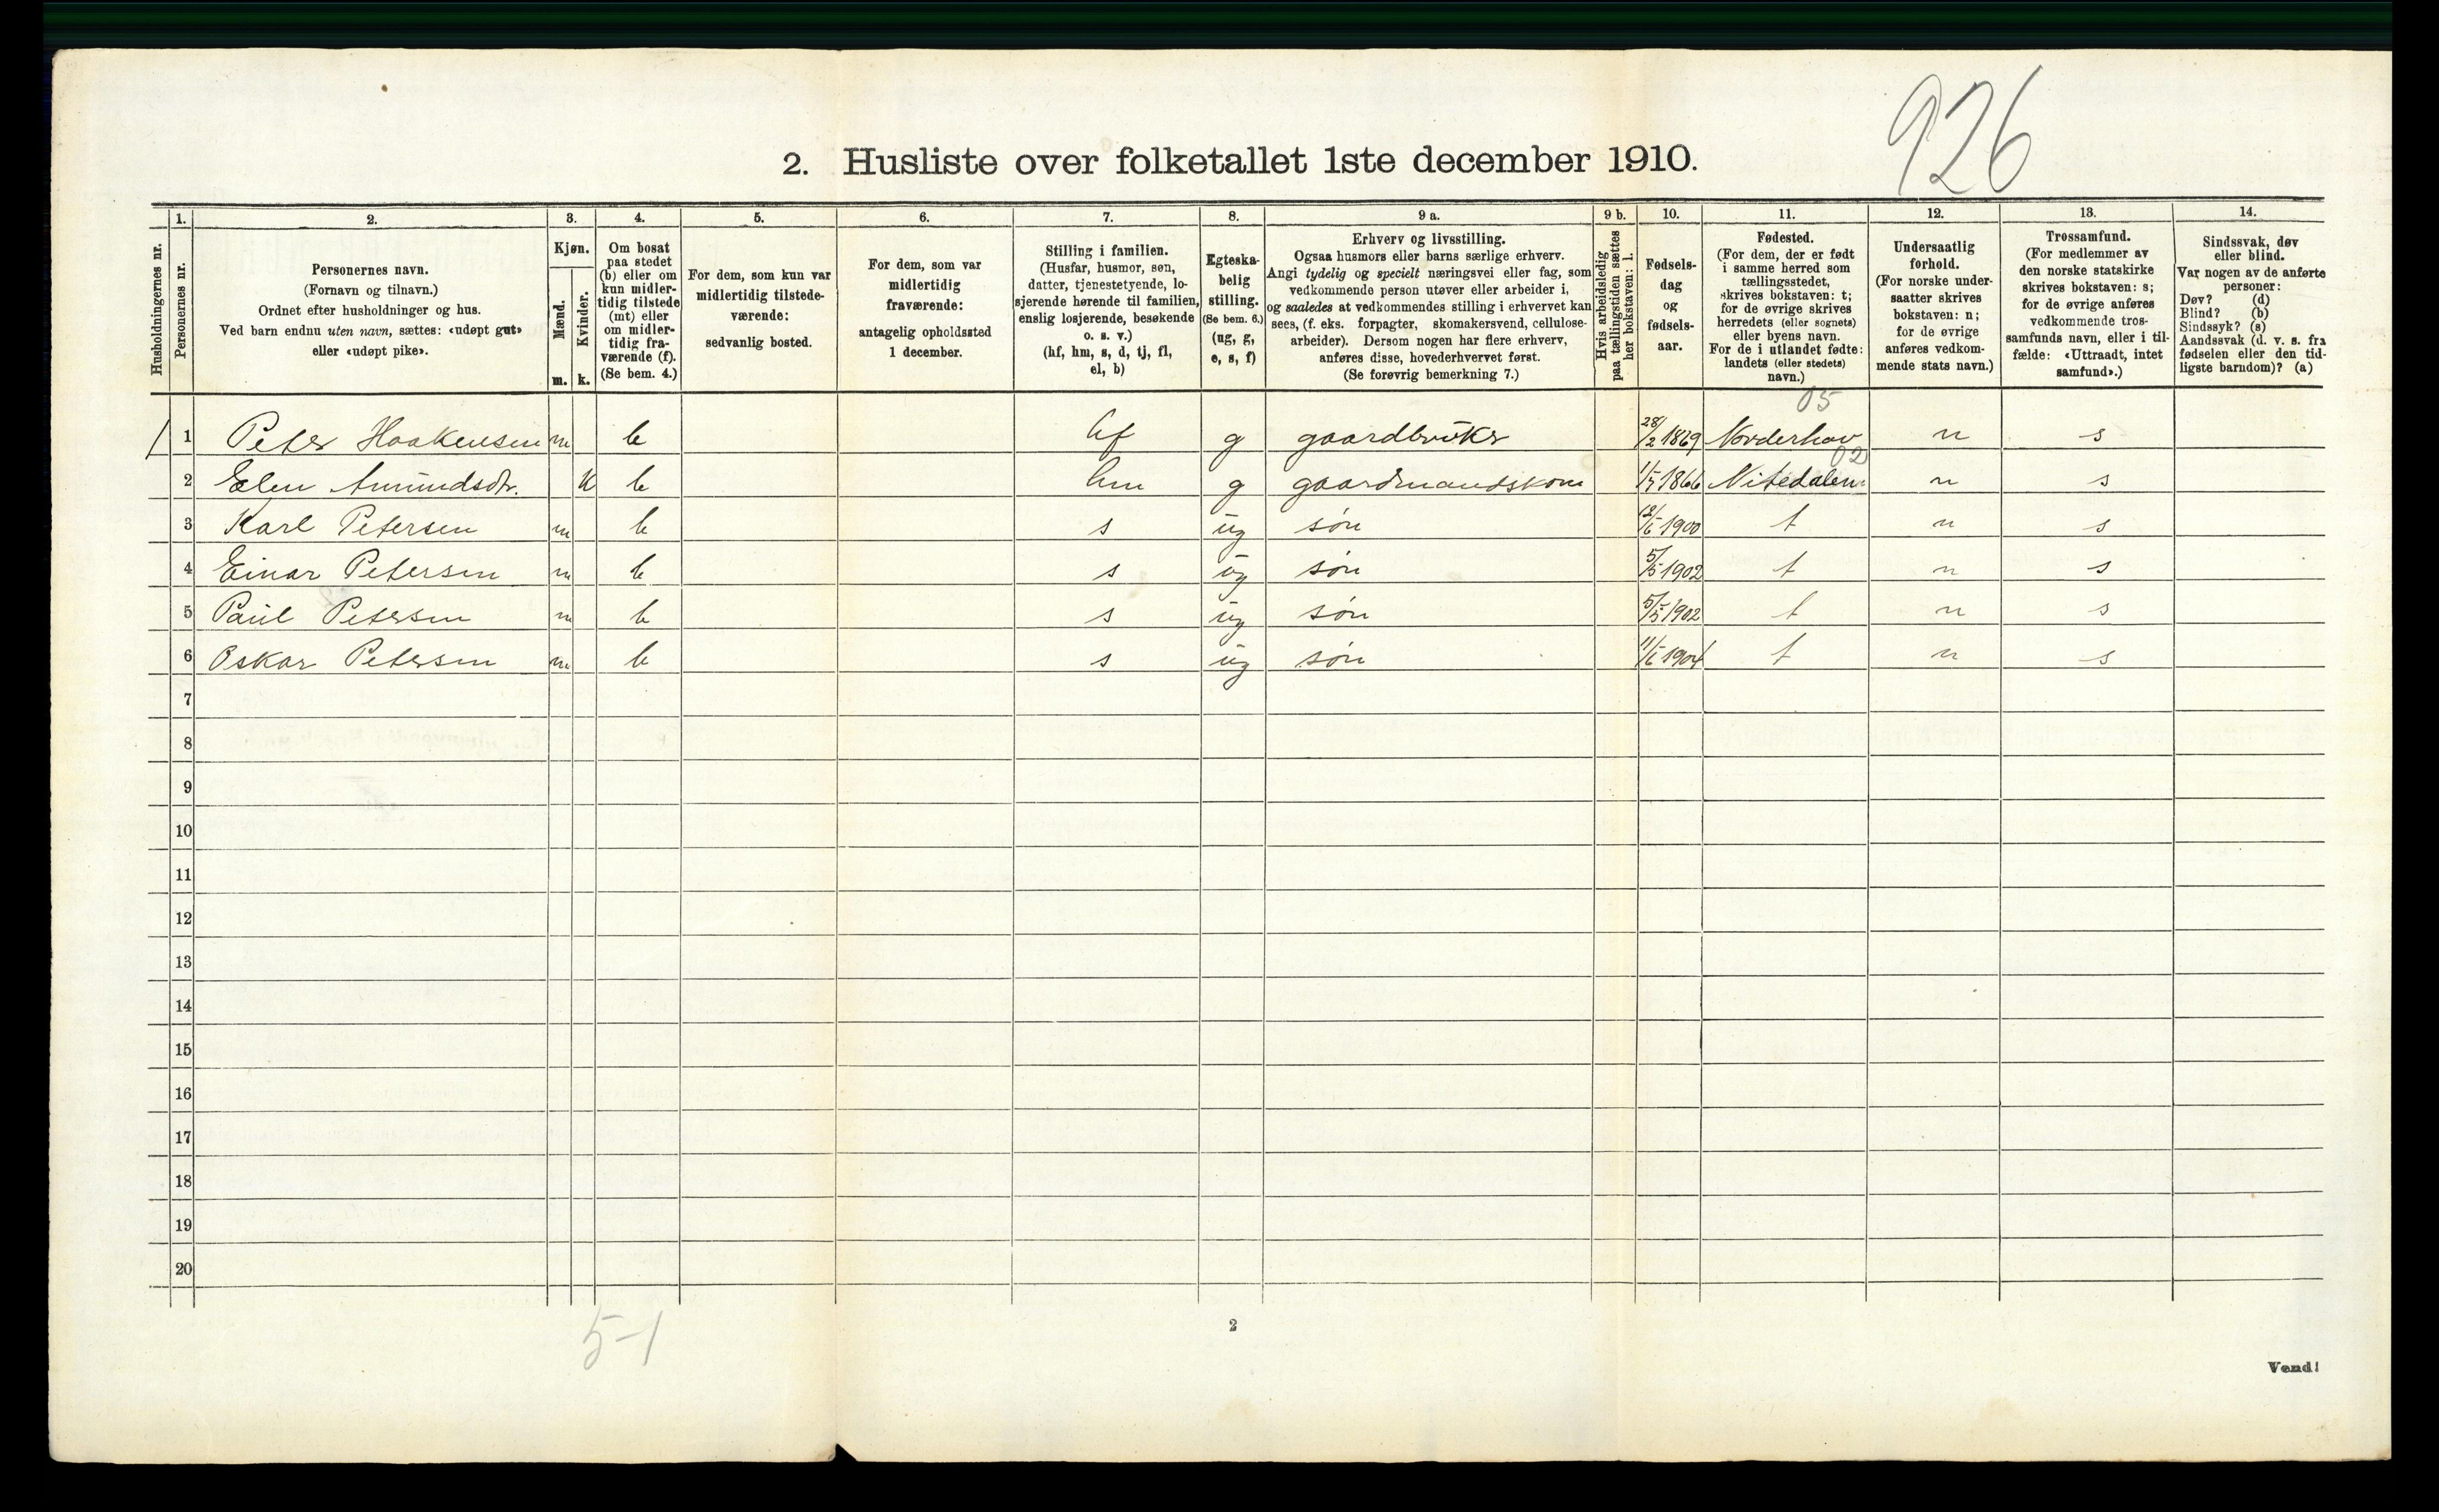 926
2. Husliste over folketallet 1ste december 1910.
Husholdningernes nr.
1.
Personernes nr.
2.
Personernes navn.
(Fornavn og tilnavn.)
Ordnet efter husholdninger og hus.
Ved barn endnu uten navn, sættes: «udøpt gut»
eller «udøpt pike».
3.
Kjøn.
Mænd.
m.
Kvinder.
k.
4.
Om bosat
paa stedet
(b) eller om
kun midler-
tidig tilstede
(mt) eller
om midler-
tidig fra-
værende (f).
(Se bem. 4.)
5.
For dem, som kun var
midlertidig tilstede-
værende:
sedvanlig bosted.
6.
For dem, som var
midlertidig
fraværende:
antagelig opholdssted
1 december.
7.
Stilling i familien.
(Husfar, husmor, søn,
datter, tjenestetyende, lo-
sjerende hørende til familien,
enslig losjerende, besøkende
o. s. v.)
(hf, hm, s, d, tj, fl,
el, b)
8.
Egteska-
belig
stilling.
(Se bem. 6.)
(ug, g,
e, s, f)
9 a.
Erhverv og livsstilling.
Ogsaa husmors eller barns særlige erhverv.
Angi tydelig og specielt næringsvei eller fag, som
vedkommende person utøver eller arbeider i,
og saaledes at vedkommendes stilling i erhvervet kan
sees, (f. eks. forpagter, skomakersvend, cellulose-
arbeider). Dersom nogen har flere erhverv,
anføres disse, hovederhvervet først.
(Se forøvrig bemerkning 7.)
9 b.
Hvis arbeidsledig
paa tællingstiden sættes
her bokstaven: l.
10.
Fødsels-
dag
og
fødsels-
aar.
11.
Fødested.
(For dem, der er født
i samme herred som
tællingsstedet,
skrives bokstaven: t;
for de øvrige skrives
herredets (eller sognets)
eller byens navn.
For de i utlandet fødte:
landets (eller stedets)
navn.)
12.
Undersaatlig
forhold.
(For norske under-
saatter skrives
bokstaven: n;
for de øvrige
anføres vedkom-
mende stats navn.)
13.
Trossamfund.
(For medlemmer av
den norske statskirke
skrives bokstaven: s;
for de øvrige anføres
vedkommende tros-
samfunds navn, eller i til-
fælde: «Uttraadt, intet
samfund».)
14.
Sindssvak, døv
eller blind.
Var nogen av de anførte
personer:
Døv? (d)
Blind? (b)
Sindssyk? (s)
Aandssvak (d. v. s. fra
fødselen eller den tid-
ligste barndom)? (a)
05
1 Peter Haakensen m b hf g gaardbruker 28/2 1869 Norderhov n s
02
2 Elen Amundsdtr. k b hm g gaardmandskone 1866 Nitedalen n s
3 Karl Petersen m b s ug søn 1900 t n s
4 Einar Petersen m b s ug søn 5/5 1902 t n s
5 Paul Petersen m b s ug søn 5/5 1902 t n s
6 Oskar Petersen m b s ug søn 1904 t n s
7
8
9
10
11
12
13
14
15
16
17
18
19
20
5-1
2
Vend!